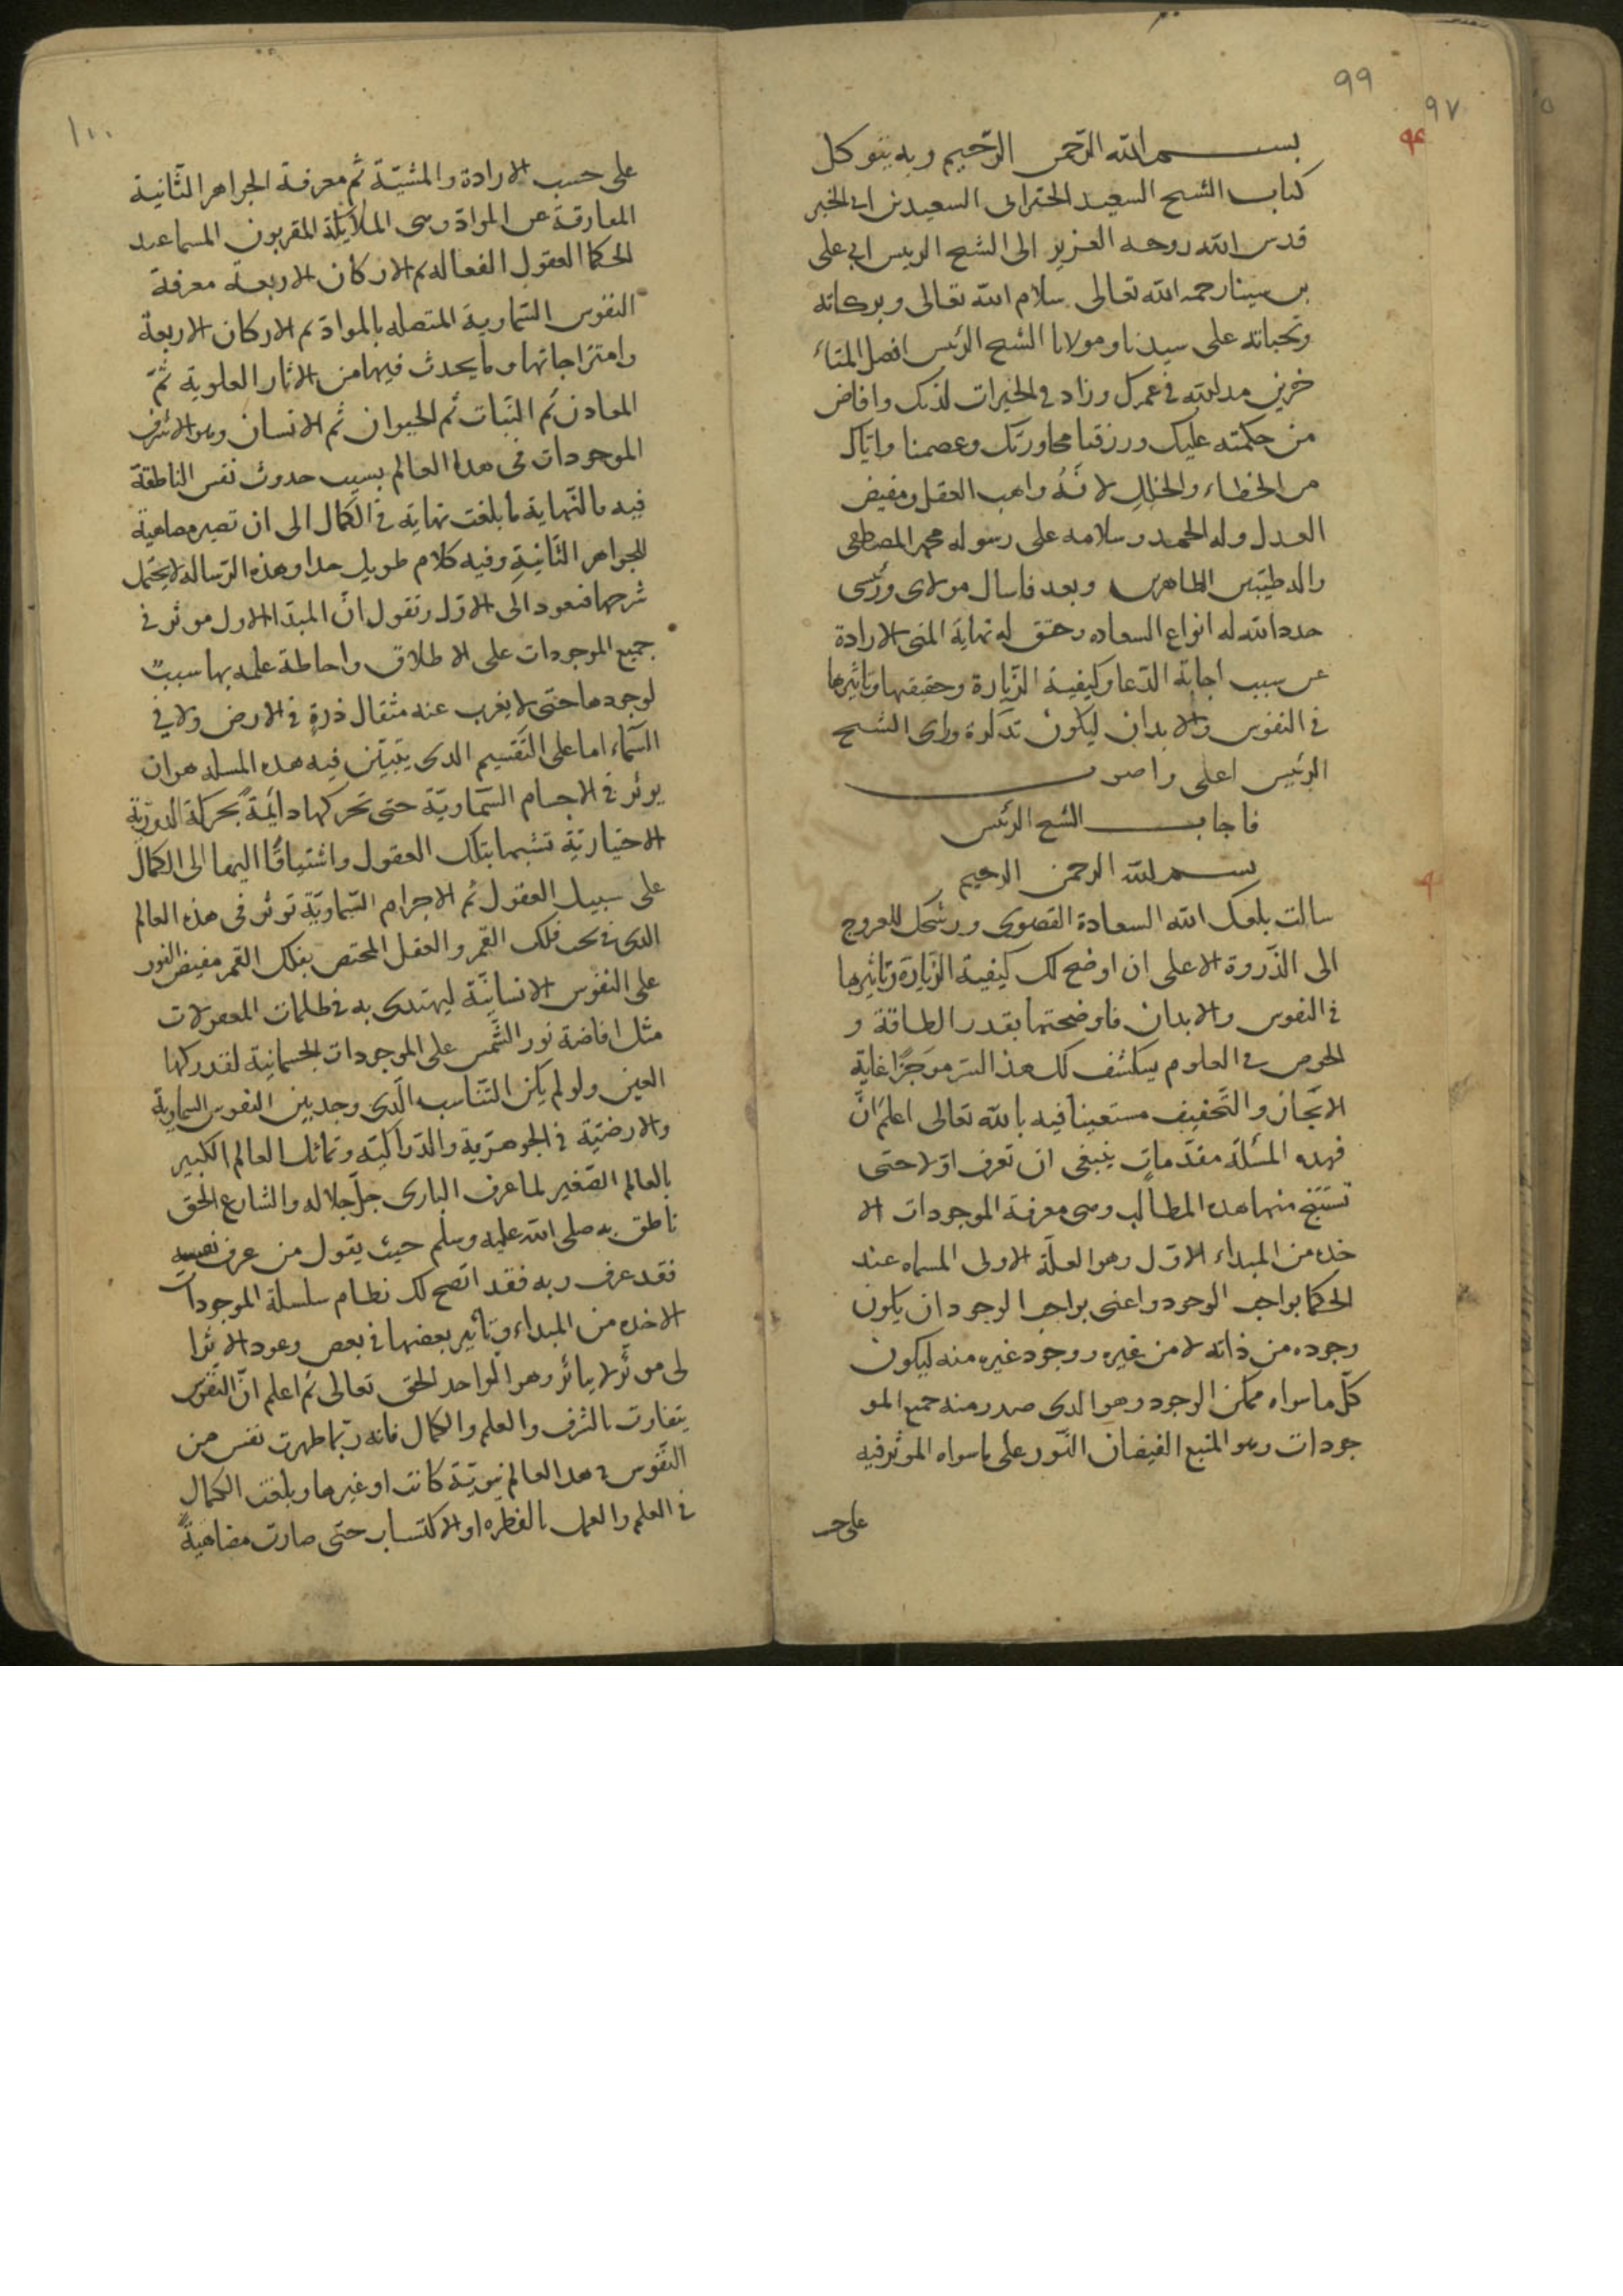 ٩٩
٩٧
٩٤
بسم الله الرحمن الرحيم وبه نتوكل
كتاب الشيخ السعيد السعيد بن ابى الخير
قدس الله روحه العزيز الى الشيخ الرييس ابي على
بن سينا رحمه الله تعالى سلام الله تعالى وبركاته
وتحياته على سيدنا ومولانا الشيح الرئيس افصل المتاء
خرين مد الله في عمرك وزاد في الخيرات لديك وافاض
من حكمته عليك ورزقنا محاورتك وعصمنا واياك
من الخطاء والخلل لانه واهب العقل ومفيض
العدل وله الحمد وسلامه على رسوله محمد المصطفى
واله طيبين الطاهرين وبعد فاسال مولاى ورئسى
حدد الله له انواع السعاده وحقق له نهاية المنى الارادة
عن سبب اجابة الدعا وكيفية الزيارة وحقيقها وتاثيرها
في النفوس والابدان ليكون تذكرة وراى الشيح
الرئيس اعلى واصوب
فاجاب الشيخ الرئس
بسم الله الرحمن الرحيم
سالت بلغك الله السعادة القصوى ورشحك للعروج
الى الذروة الاعلى ان اوضح لك كيفية الزيارة وتاثيرها
في النفوس والابدان فاوضحتها بقدر الطاقة و
الخوص في العلوم يكشف لك هذا السر موجزا غاية
الايجاز والتخفيف مستعينا فيه بالله تعالى اعلم ان
فهذه المسئلة مقدمات ينبغى ان تعرف اولا حتى
تستنتج منها هذه المطالب وهى معرفة الموجودات الا
خده من المبداء الاول وهو العلة الاولى المسماه عند
الحكما بواجب الوجود واعنى بواجب الوجود ان يكون
وجوده من ذاته لا من غيره ووجود غيره منه ليكون
كل ما سواه ممكن الوجود وهو الدى صدر منه جميع المو
جودات وهو المنبع الفيضان النور على ما سواه الموثر فيه
على حسب
١٠٠
على حسب الارادة والمشية ثم معرفة الجواهر الثانية
المفارقة عن المواد وهى الملائكة المقربون المسما عند
الحكما العقول الفعاله ثم الاركان الاربعة معرفة
النفوس السماوية المتصله بالمواد ثم الاركان الاربعة
وامتزاجاتها وما يحدث فيها من الاثار العلوية ثم
المعادن ثم النبات ثم الحيوان ثم الانسان وهو الاشرف
الموجودات فى هدا العالم بسبب حدوث نفس الناطقة
فيه بالنهاية ما بلغت نهاية في الكمال الى ان تصير مضاهية
للجواهر الثانية وفيه كلام طويل جدا وهذه الرسالة لا يحتمل
شرحها فنعود الى الاول ونقول ان المبدا الاول موثر في
جميع الموجودات على الاطلاق واحاطة علمه بها سببٌ
لوجودها حتى لا يغرب عنه مثقال ذرة في الارض ولا في
السماء اما على التقسيم الدى يتبين فيه هده المسله هو ان
يوثر في الاجسام السماوية حتى تحركها دائمة بحركة الدورية
الاختيارية تشبها بتلك العقول واشتياقا اليها الى الكمال
على سبيل العقول ثم الاجرام السماوية توثر فى هذه العالم
الدى تحت فلك القمر والعقل المختص بفلك القمر مفيض النور
على النفوس الانسانية ليهتدى به في ظلمات المعقولات
مثل افاضة نور الشمس على الموجودات الجسمانية لتدركها
العين ولو لم يكن التناسب الذى وجد بين النفوس السماوية
والارضية في الجوهرية والدراكية وتماثل العالم الكبير
بالعالم الصغير لما عرف البارى جل جلاله والشارع الحق
ناطق به صلى الله عليه وسلم حيث يقول من عرف نفسه
فقد عرف ربه فقد اتضح لك نظام سلسلة الموجودات
الاخده من المبداء وتاثير بعضها في بعص وعود الاثر ا
لى موثر لا يتاثر وهو الواحد الحق تعالى ثم اعلم ان النفوس
يتفاوت بالشرف والعلم والكمال فانه ربما ظهرت نفس من
النفوس في هدا العالم نبوية كانت او غيرها وبلغت الكمال
في العلم والعمل بالفطره او الاكتساب حتى صارت مضاهية